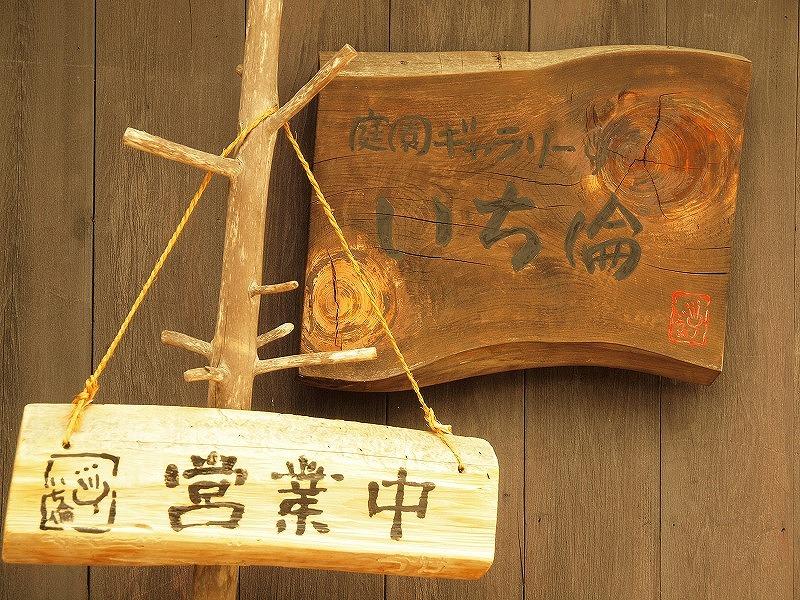 庭園ギャラリー
いち倫
いち倫
営業中